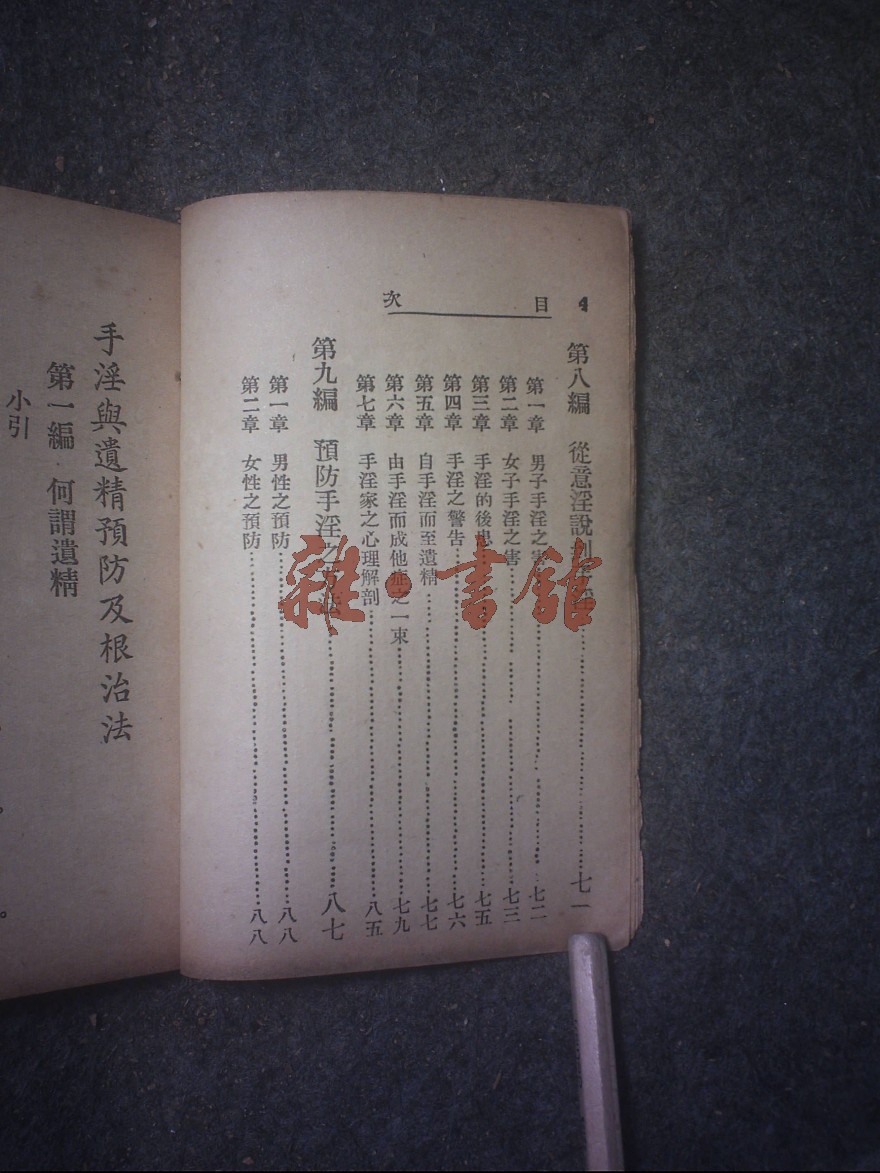 4 目 次
第八編 從意淫說到手淫……七一
第一章 男子手淫之害……七二
第二章 女子手淫之害……七三
第三章 手淫的後患……七五
第四章 手淫之警告……七六
第五章 自手淫而至遺精……七七
第六章 由手淫而成他症之一束……七九
第七章 手淫家之心理解剖……八五
第九編 預防手淫之方法……八七
第一章 男性之預防……八八
第二章 女性之預防……八八
手淫與遺精預防及根治法
第一編 何謂遺精
小引
雜·書館